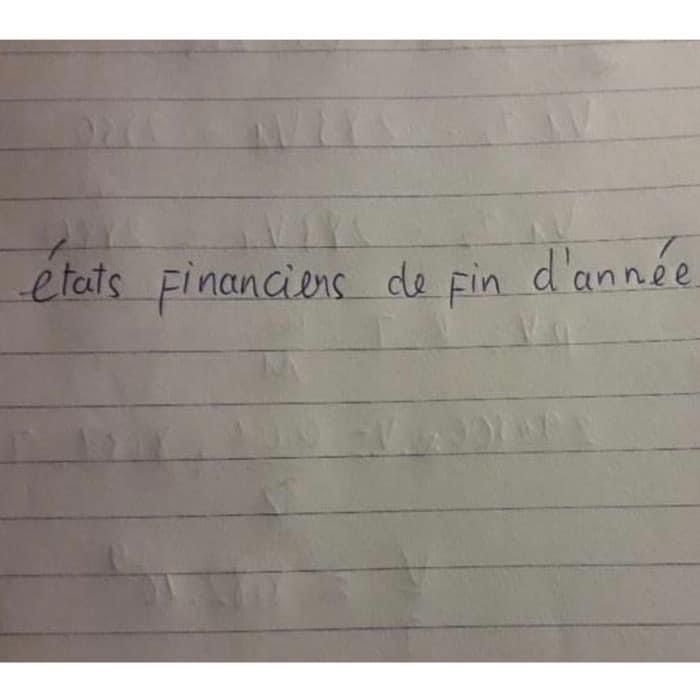 états financiers de fin d'année